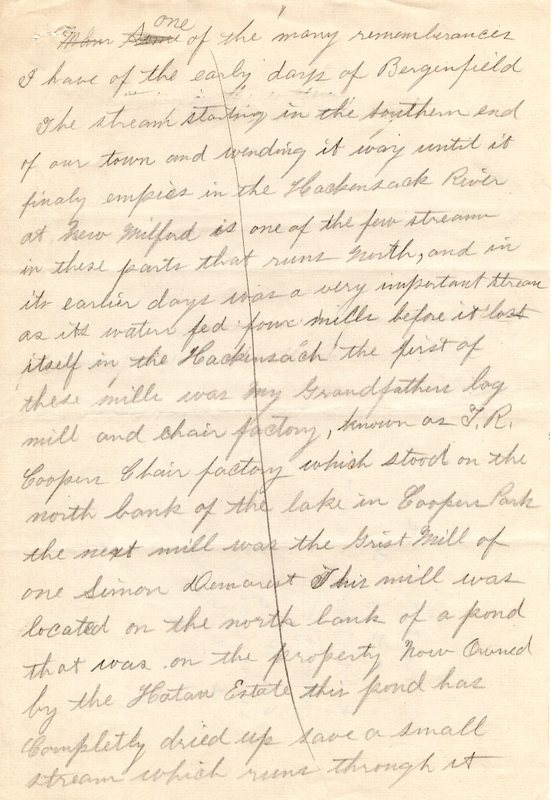 one
of the many rememberances
I have of the early days of Bergenfield
The stream starting in the southern end
of our town and wending it way until it
finaly empies in the Hackensack River
at New Milford is one of the few streams
in these parts that runs North, and in
its earlier days was a very important stream
as its waters fed four mills before it lost
itself in the Hackensack the first of
these mills was my Grandfathers log
mill and chair factory, known as T.R.
Coopers Chair factory which stood on the
north bank of the lake in Coopers Park
the next mill was the Grist Mill of
one Simon Demarest This mill was
located on the north bank of a pond
that was on the property Now Owned
by the Estate this pond has
Completly dried up save a small
stream which runs through it